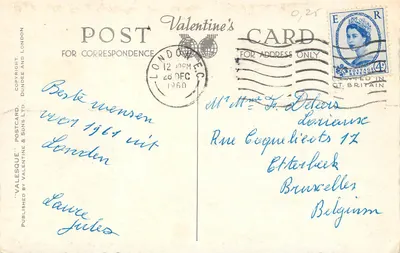 Valentine's
POST CARD
FOR CORRESPONDENCE
FOR ADDRESS ONLY
0,25
E R
LONDON E.C.
12 PM
28 DEC
1960
"VALESQUE" POSTCARD. COPYRIGHT.
PUBLISHED BY VALENTINE & SONS LTD. DUNDEE AND LONDON
Beste wensen
voor 1961 uit
Londen
Laure
Jules
Mr Mme F.
Loriaux
Rue Coquelicots 17
Etterbeek
Bruxelles
Belgium
GT. BRITAIN